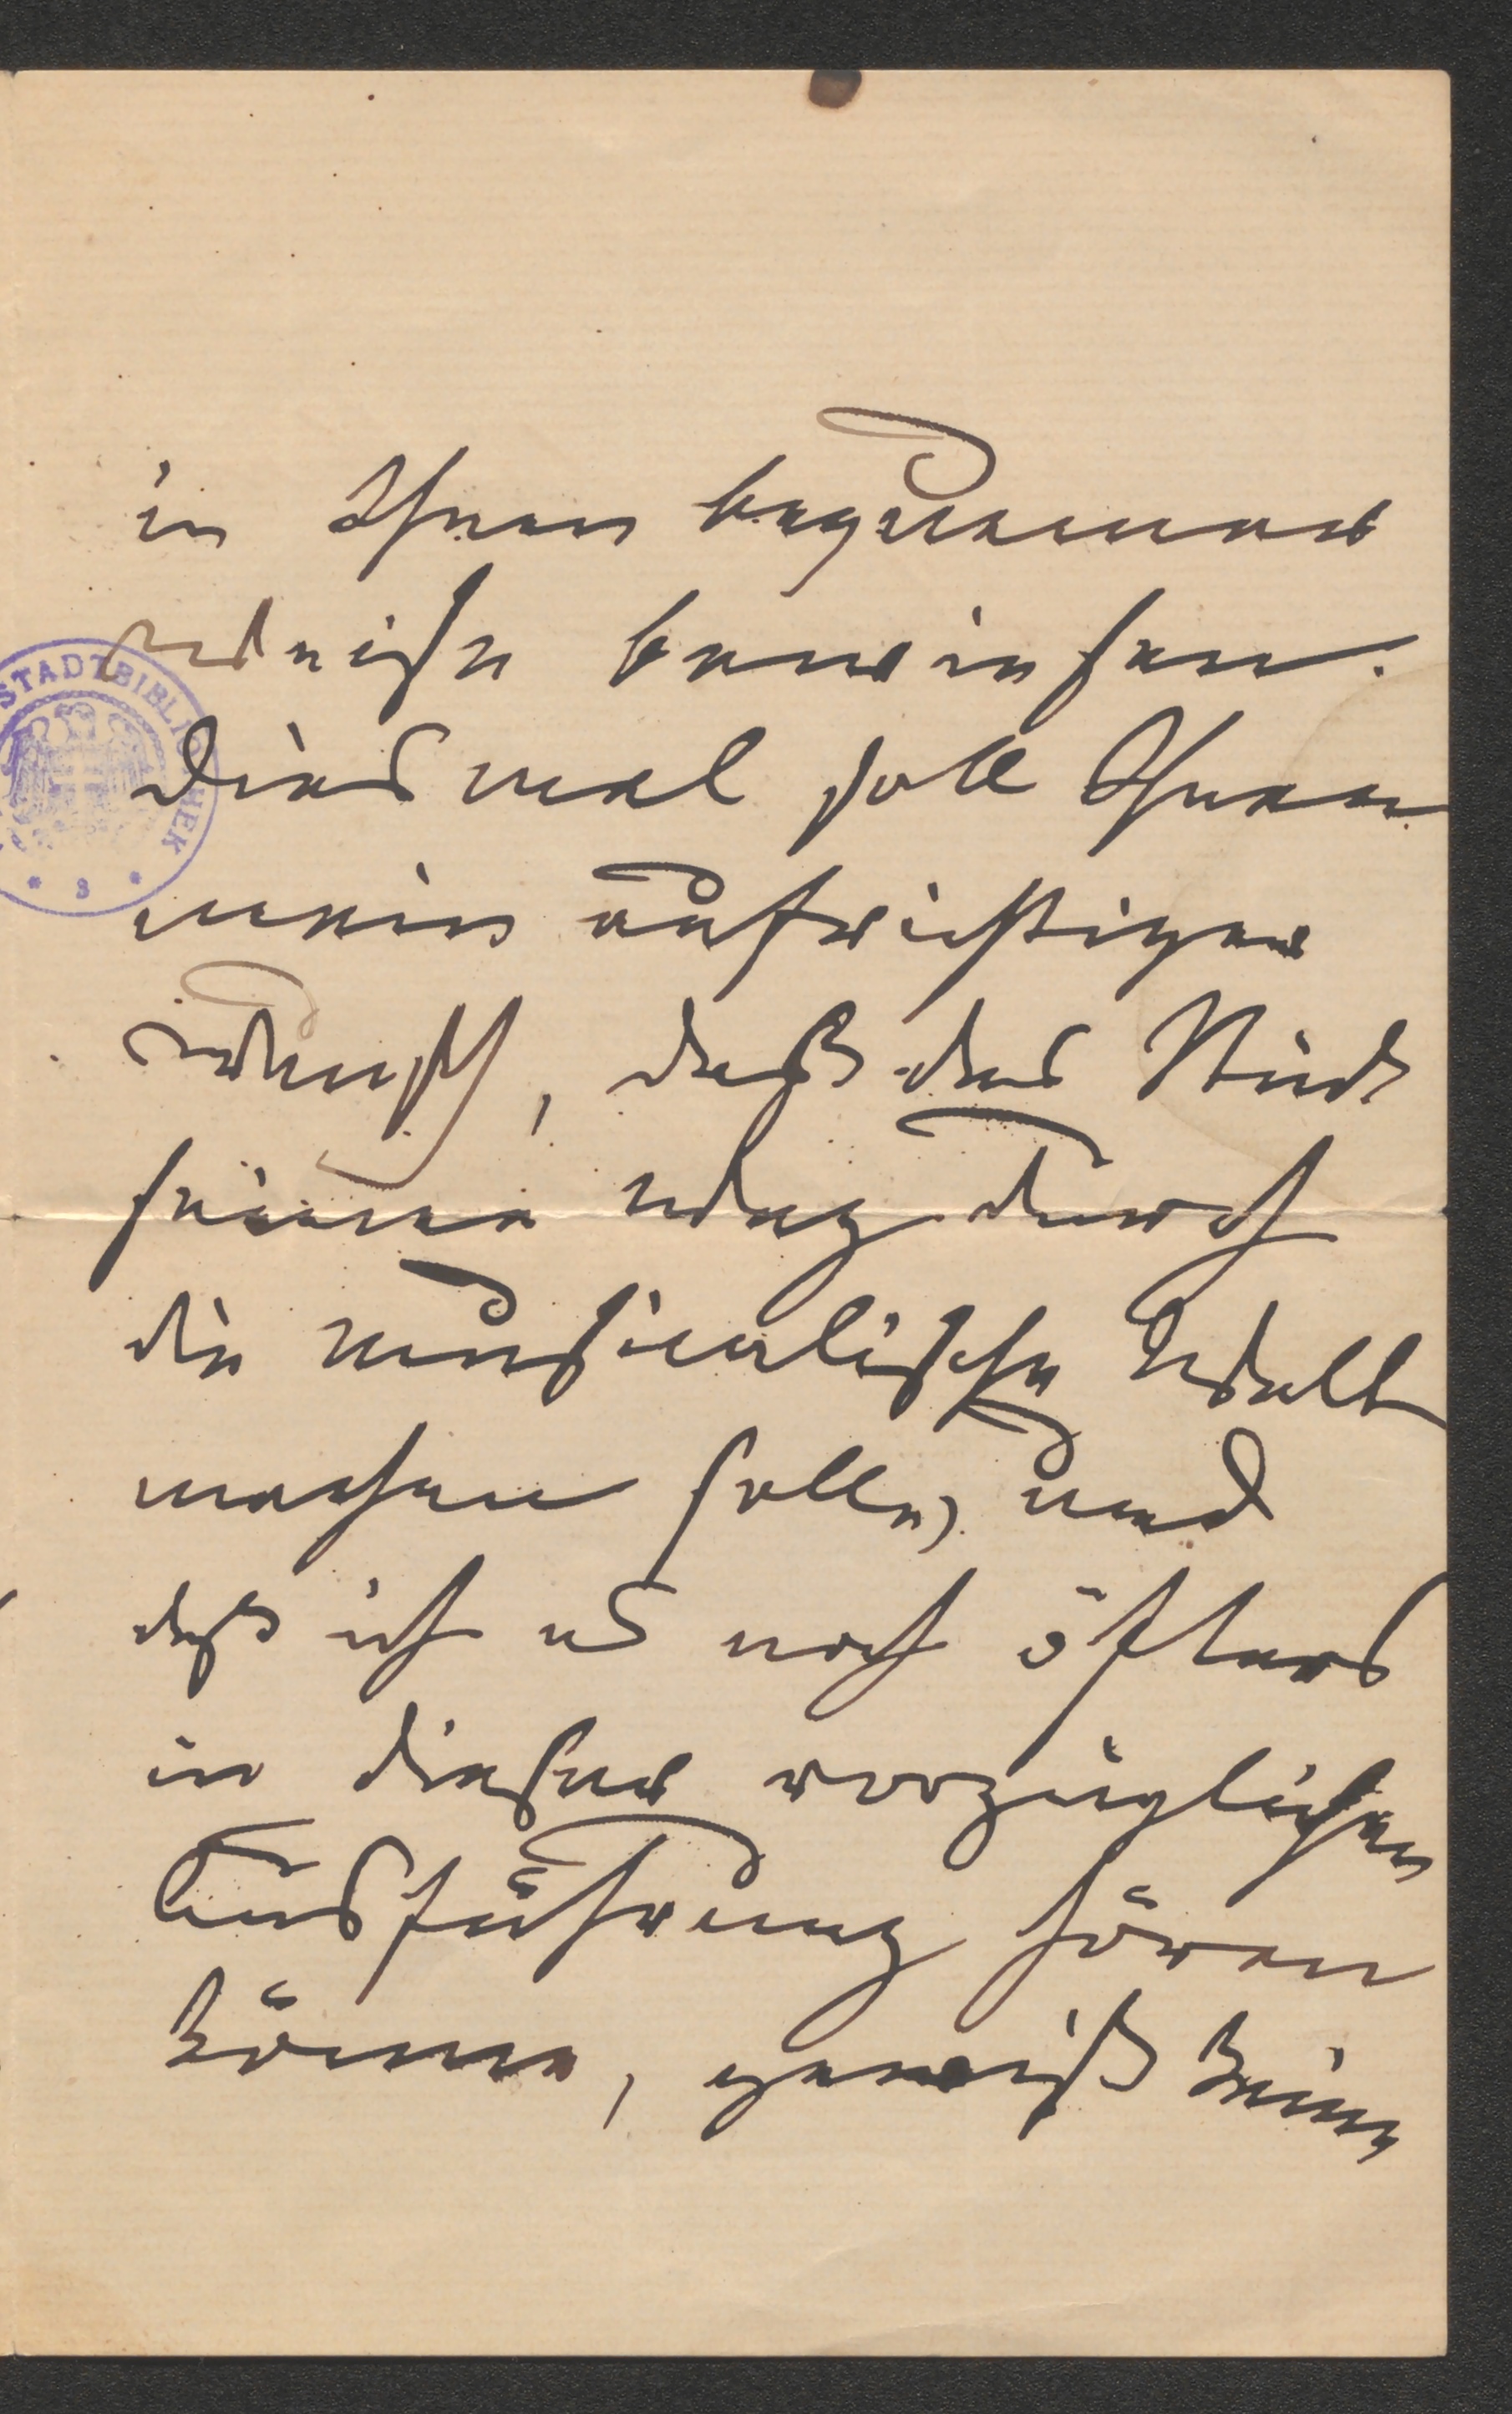 in Ihnen bequemer
Weise beweisen.
Diesmal soll Ihnen
mein aufrichtiger
Wunsch, daß das Stück
seinen Weg durch
die musicalische Welt
machen solle, und
daß ich es noch öfters
in dieser vorzüglichen
Ausführung hören
könne, gewiß keinen
STADTBIBLIOTHEK
* 3 *